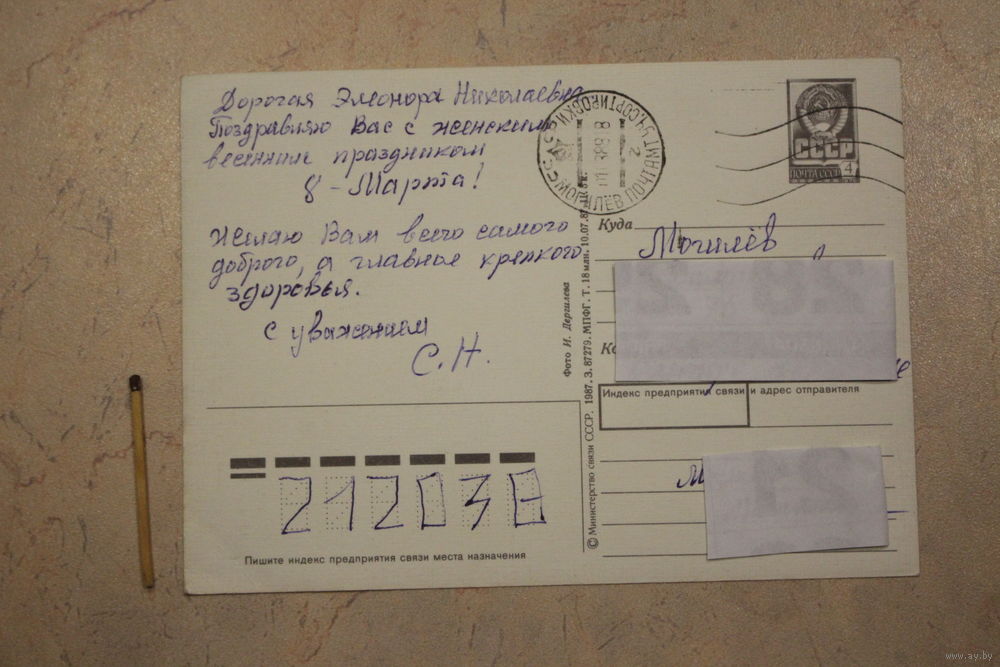 Дорогая Элеонора Николаевна
Поздравляю Вас с женским
весенним праздником
8 - Марта!
Желаю Вам всего самого
доброго, а главное крепкого
здоровья.
с уважением
С. Н.
Пишите индекс предприятия связи места назначения
Фото И. Дергилева
© Министерство связи СССР. 1987. З. 87279. МПФГ. Т. 18 млн. 10.07.87
МОГИЛЕВ ПОЧТАМТ
СССР
ПОЧТА СССР 4
Куда
Могилёв
Индекс предприятия связи и адрес отправителя
www.ay.by